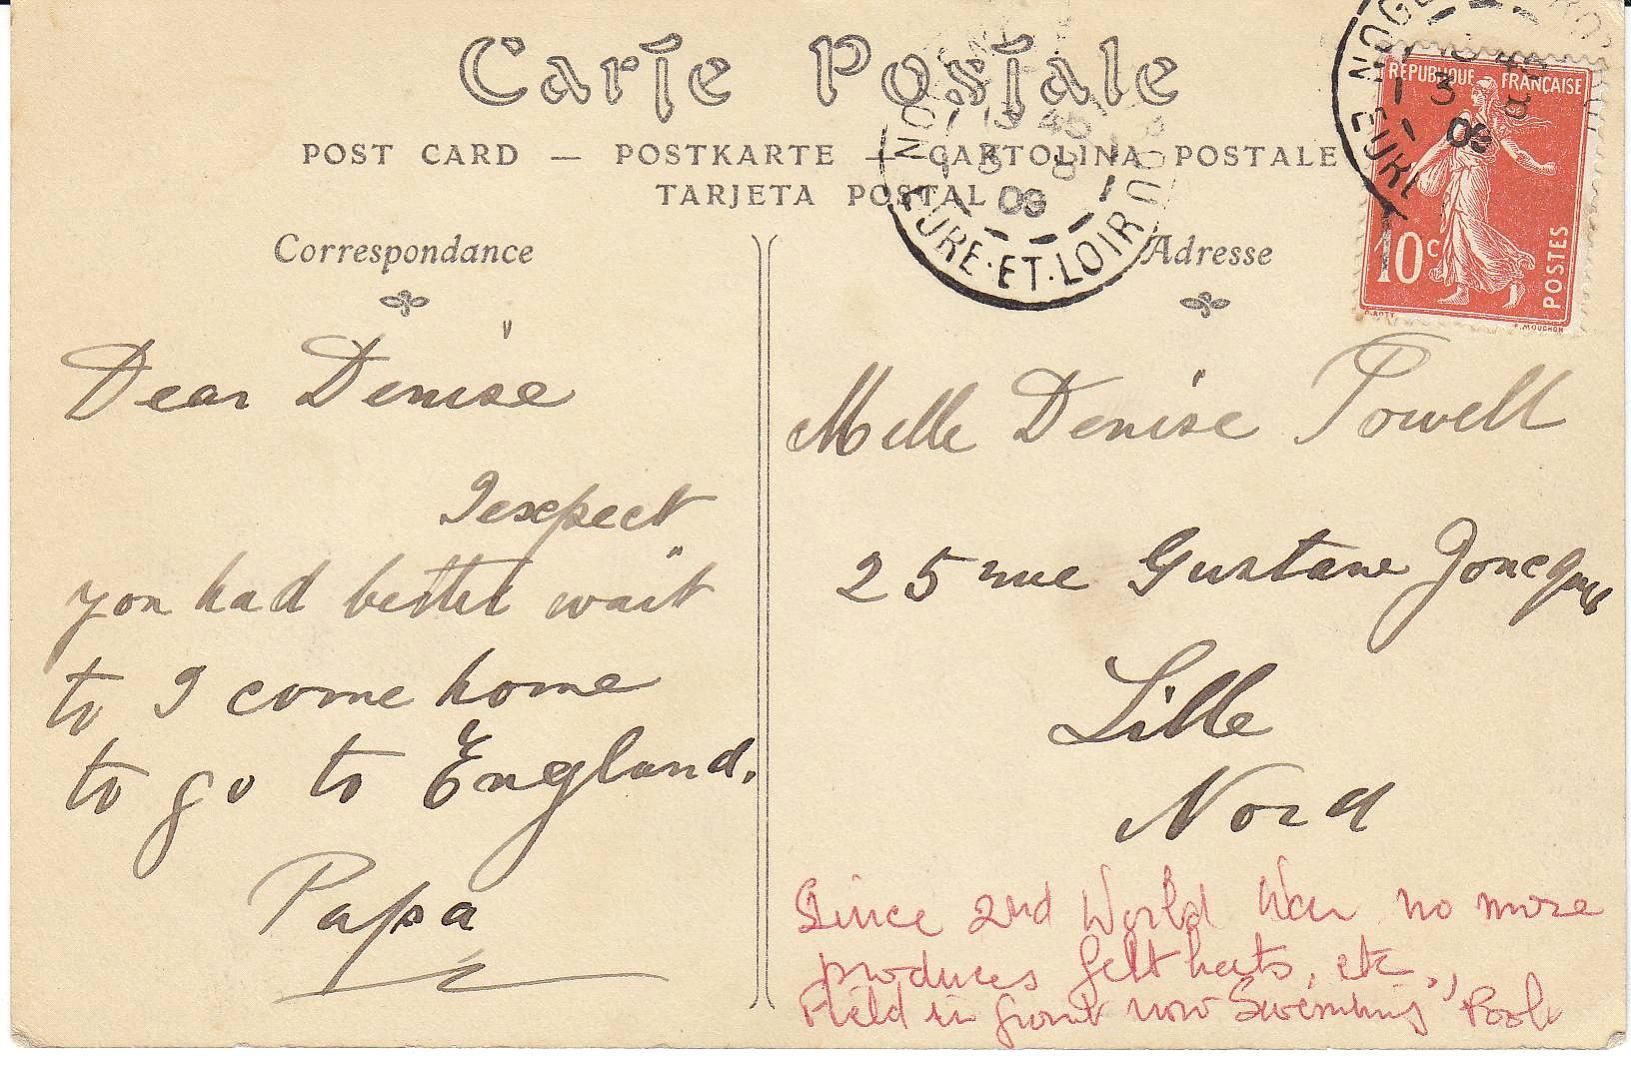 Carte Postale
POST CARD — POSTKARTE — CARTOLINA POSTALE
TARJETA POSTAL
Correspondance
Dear Denise
I expect
you had better wait
to I come home
to go to England.
Papa
Adresse
Melle Denise Powell
25 rue Gustave Joncquez
Lille
Nord
Since 2nd World War no more
produces felt hats, etc.,
Field in front now Swimming Pool
REPUBLIQUE FRANÇAISE
10c
POSTES
E. MOUCHON
13 45
3 8
09
EURE-ET-LOIR
3
09
EURE